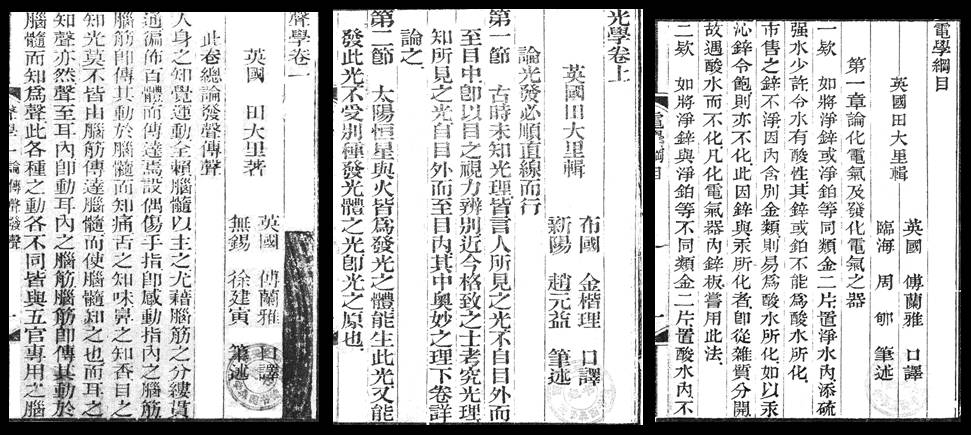 聲學卷一
英國 田大里著
英國 傅蘭雅 口譯
無錫 徐建寅 筆述
此卷總論發聲傳聲
人身之知覺運動全賴腦髓以主之尤藉腦筋之分縷貫
通徧佈百體而傳達焉設偶傷手指卽感動指內之腦筋
腦筋卽傳其動於腦髓而知痛舌之知味鼻之知香目之
知光莫不皆由腦筋傳達腦髓而使腦髓知之也而耳之
知聲亦然聲至耳內卽動耳內之腦筋腦筋卽傳其動於
腦髓而知爲聲此各種之動各不同皆與五官專用之腦
聲學一 論傳聲發聲 一
光學卷上
英國田大里輯
布國 金楷理 口譯
新陽 趙元益 筆述
論光發必順直線而行
第一節 古時未知光理皆言人所見之光不自目外而
至目中卽以目之視力辨別近今格致之士考究光理
知所見之光自目外而至目內其中奧妙之理下卷詳
論之
第二節 太陽恒星與火皆爲發光之體能生此光又能
發此光不受別種發光體之光卽光之原也
電學綱目
英國田大里輯
英國 傅蘭雅 口譯
臨海 周郇 筆述
第一章論化電氣及發化電氣之器
一欵 如將淨鋅或淨鉑等同類金二片置淨水內添硫
强水少許令水有酸性其鋅或鉑不能爲酸水所化
市售之鋅不淨因內含別金類則易爲酸水所化如以汞
沁鋅令飽則亦不化此因鋅與汞所化者卽從雜質分開
故遇酸水而不化凡化電氣器內鋅板嘗用此法
二欵 如將淨鋅與淨鉑等不同類金二片置酸水內不
電學綱目 一